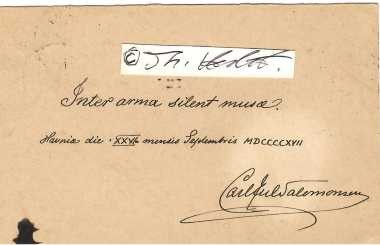 © Th.
Inter arma silent musæ.
Havniæ die XXVI mensis Septembris MDCCCCXVII
Carl Jul Salomonsen